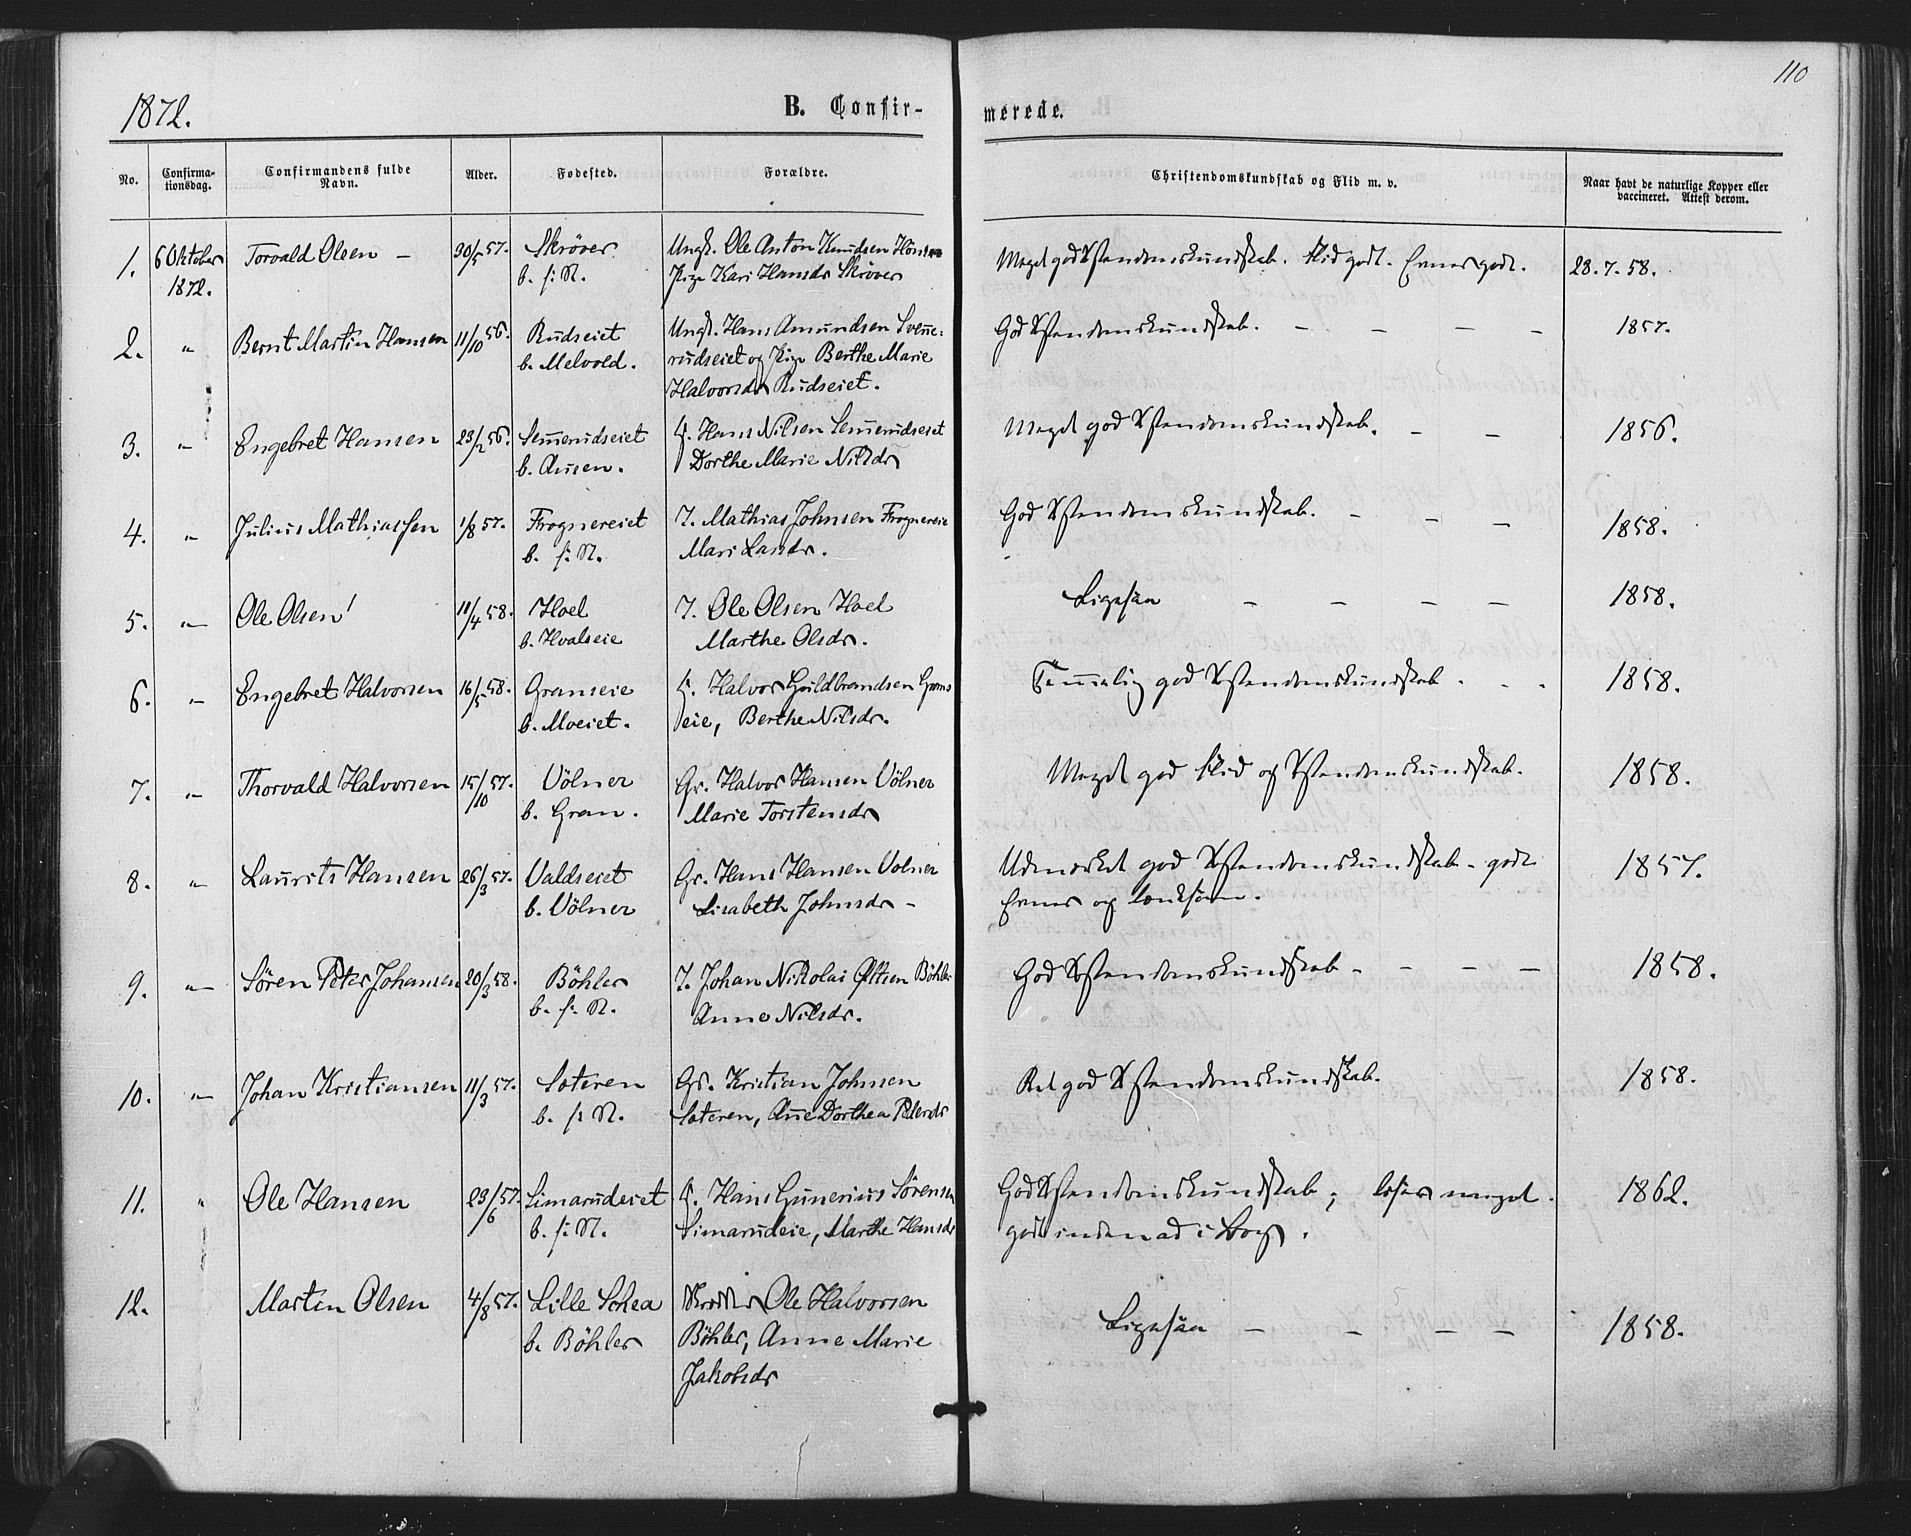 110
1872.
B. Confir-
merede.
No. Confirma-tionsdag. Confirmandens fulde Navn. Alder. Fødested. Forældre. Christendomskundskab og Flid m. v. Naar havt de naturlige Kopper eller vaccineret. Attest derom.
1. 6 Oktober Torvald Olsen – 30/5 57. Skröver Ungk. Ole Anton Knudsen Meget god Xstendomskundskab. Flid godt. Evner godt. 28. 7. 58.
1872. b. s: N. Pige Kari Hansdr Skröver
2. " Bernt Martin Hansen 11/10 56. Rudseiet Ungk. Hans Amundsen Svene- God Xstendomskundskab. – – – – 1857.
b. Melvold. rudseiet og Pige Berthe Marie
Halvorsdr Rudseiet.
3. " Engebret Hansen 23/2 56. Semerudseiet Hans Nilsen Semerudseiet Meget god Xstendomskundskab. – – 1856.
b. Ausen. Dorthe Marie Nilsdr
4. " Julius Mathiassen 1/8 57. Frognereiet I. Mathias Johnsen Frognereie God Xstendomskundskab. – – – 1858.
b. s: N. Mari Larsdr.
5. " Ole Olsen 11/4 58. Hoel I. Ole Olsen Hoel Ligesaa – – – – 1858.
b. Hvalseie Marthe Olsdr.
6. " Engebret Halvorsen 16/5 58. Granseie Halvor Guldbrandsen Grans Temmelig god Xstendomskundskab . . . 1858.
b. Moeiet. eie, Berthe Nilsdr.
7. " Thorvald Halvorsen 15/10 57. Völner Gr. Halvor Hansen Völner Meget god Flid og Xstendomskundskab. 1858.
b. Gran. Marie Torstensdr
8. " Laurits Hansen 26/3 57. Valdseiet Gr. Hans Hansen Volner Udmærket god Xstendomskundskab – gode 1857.
b. Völner Lisabeth Johnsdr – Evner og lærksom.
9. " Sören Peter Johansen 20/3 58. Böhler I. Johan Nikolai Böhler God Xstendomskundskab – – – – 1858.
b. s: N. Anne Nilsdr.
10. " Johan Kristiansen 11/3 57. Soteren Gr. Kristian Johnsen Ret god Xstendomskundskab. 1858.
b. s: N. Soteren, Ane Dorthea Pedersdr
11. " Ole Hansen 23/6 57. Simarudeiet Hans Gunerius Sörensen God Xstendomskundskab; læser meget 1862.
b. s: N. Simarudeie, Marthe Hansdr godt indenad i Bog.
12. Martin Olsen 4/8 57. Lille Ole Halvorsen Ligesaa – – – – 1858.
b. Böhler Böhler, Anne Marie
Jakobsdr